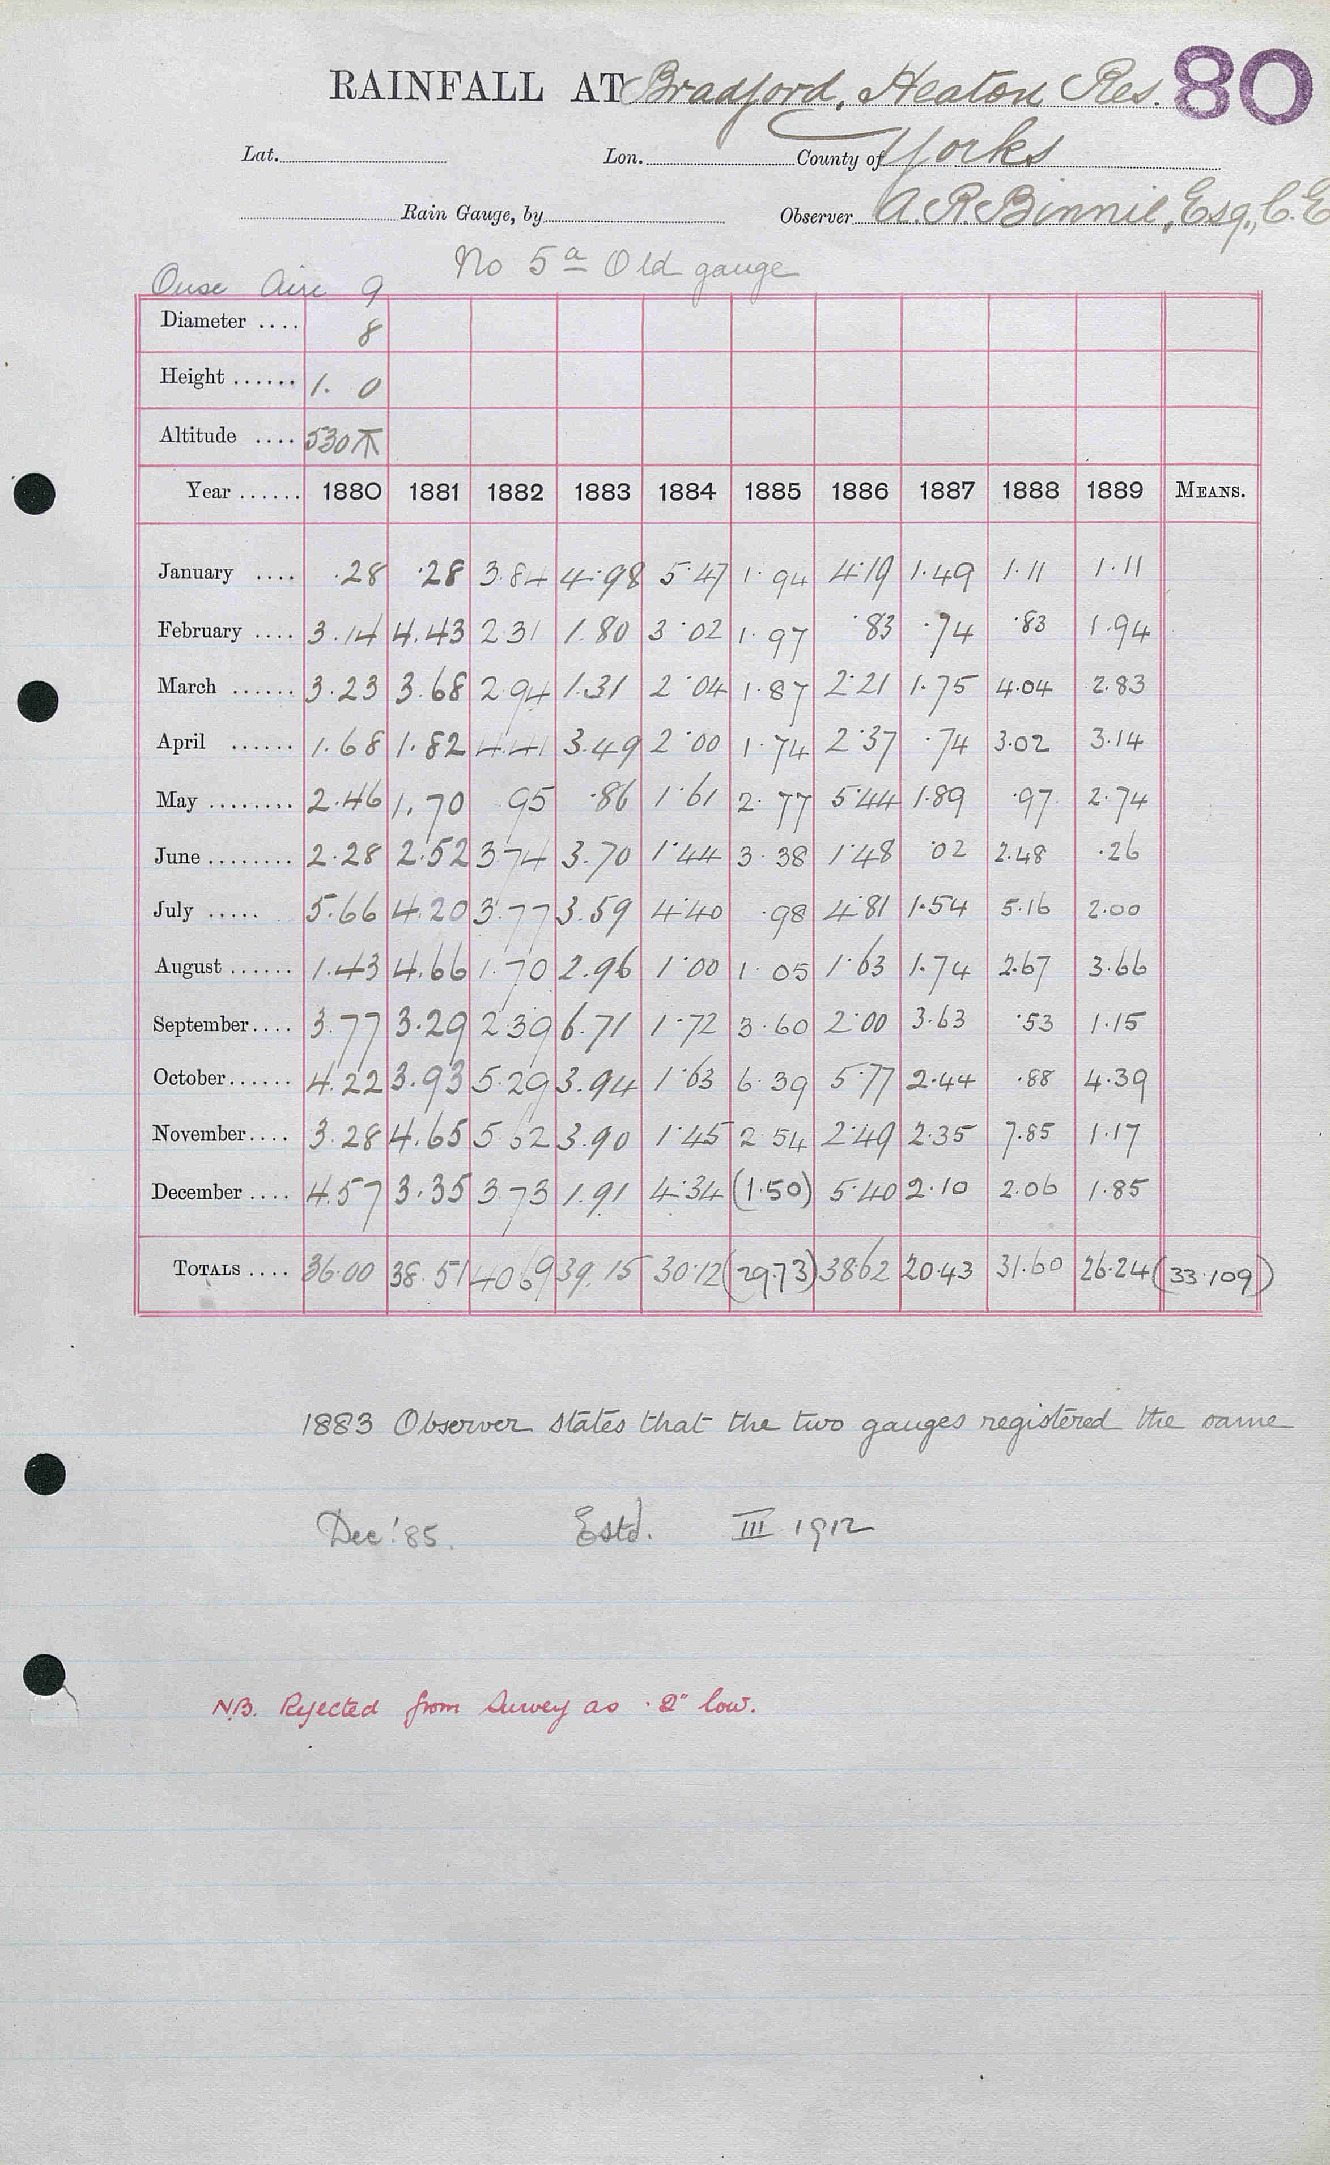 RAINFALL AT Bradford, Heaton Res. 80
Lat. Lon. County of Yorks
Rain Gauge, by Observer A. R. Binnie, Esq., C.E
No 5a Old gauge
Ouse Aire 9
Diameter .... 8
Height ...... 1. 0
Altitude .... 530
Year ...... 1880 1881 1882 1883 1884 1885 1886 1887 1888 1889 MEANS.
January .... .28 .28 3.84 4.98 5.47 1.94 4.19 1.49 1.11 1.11
February .... 3.14 4.43 2 31 1.80 3.02 1.97 .83 .74 .83 1.94
March ...... 3.23 3.68 2.94 1.31 2.04 1.87 2.21 1.75 4.04 2.83
April ...... 1.68 1.82 4.41 3.49 2.00 1.74 2.37 .74 3.02 3.14
May ........ 2.46 1.70 95 .86 1.61 2.77 5.44 1.89 .97 2.74
June ........ 2.28 2.52 3 74 3.70 1.44 3.38 1.48 .02 2.48 .26
July ..... 5.66 4.20 3.77 3.59 4.40 .98 4.81 1.54 5.16 2.00
August ...... 1.43 4.66 1.70 2.96 1.00 1.05 1.63 1.74 2.67 3.66
September.... 3.77 3.29 2 39 6.71 1.72 3.60 2.00 3.63 .53 1.15
October...... 4.22 3.93 5.29 3.94 1.63 6.39 5.77 2.44 .88 4.39
November.... 3.28 4.65 5 62 3.90 1.45 2 54 2.49 2.35 7.85 1.17
December .... 4.57 3.35 3 73 1.91 4.34 (1.50) 5.40 2.10 2.06 1.85
TOTALS .... 36.00 38.51 40 69 39.15 30.12 (29.73) 38.62 20.43 31.60 26.24 (33.109)
1883 Observer states that the two gauges registered the same
Dec '85. Estd. III 1912
N.B. Rejected from Survey as .2" low.